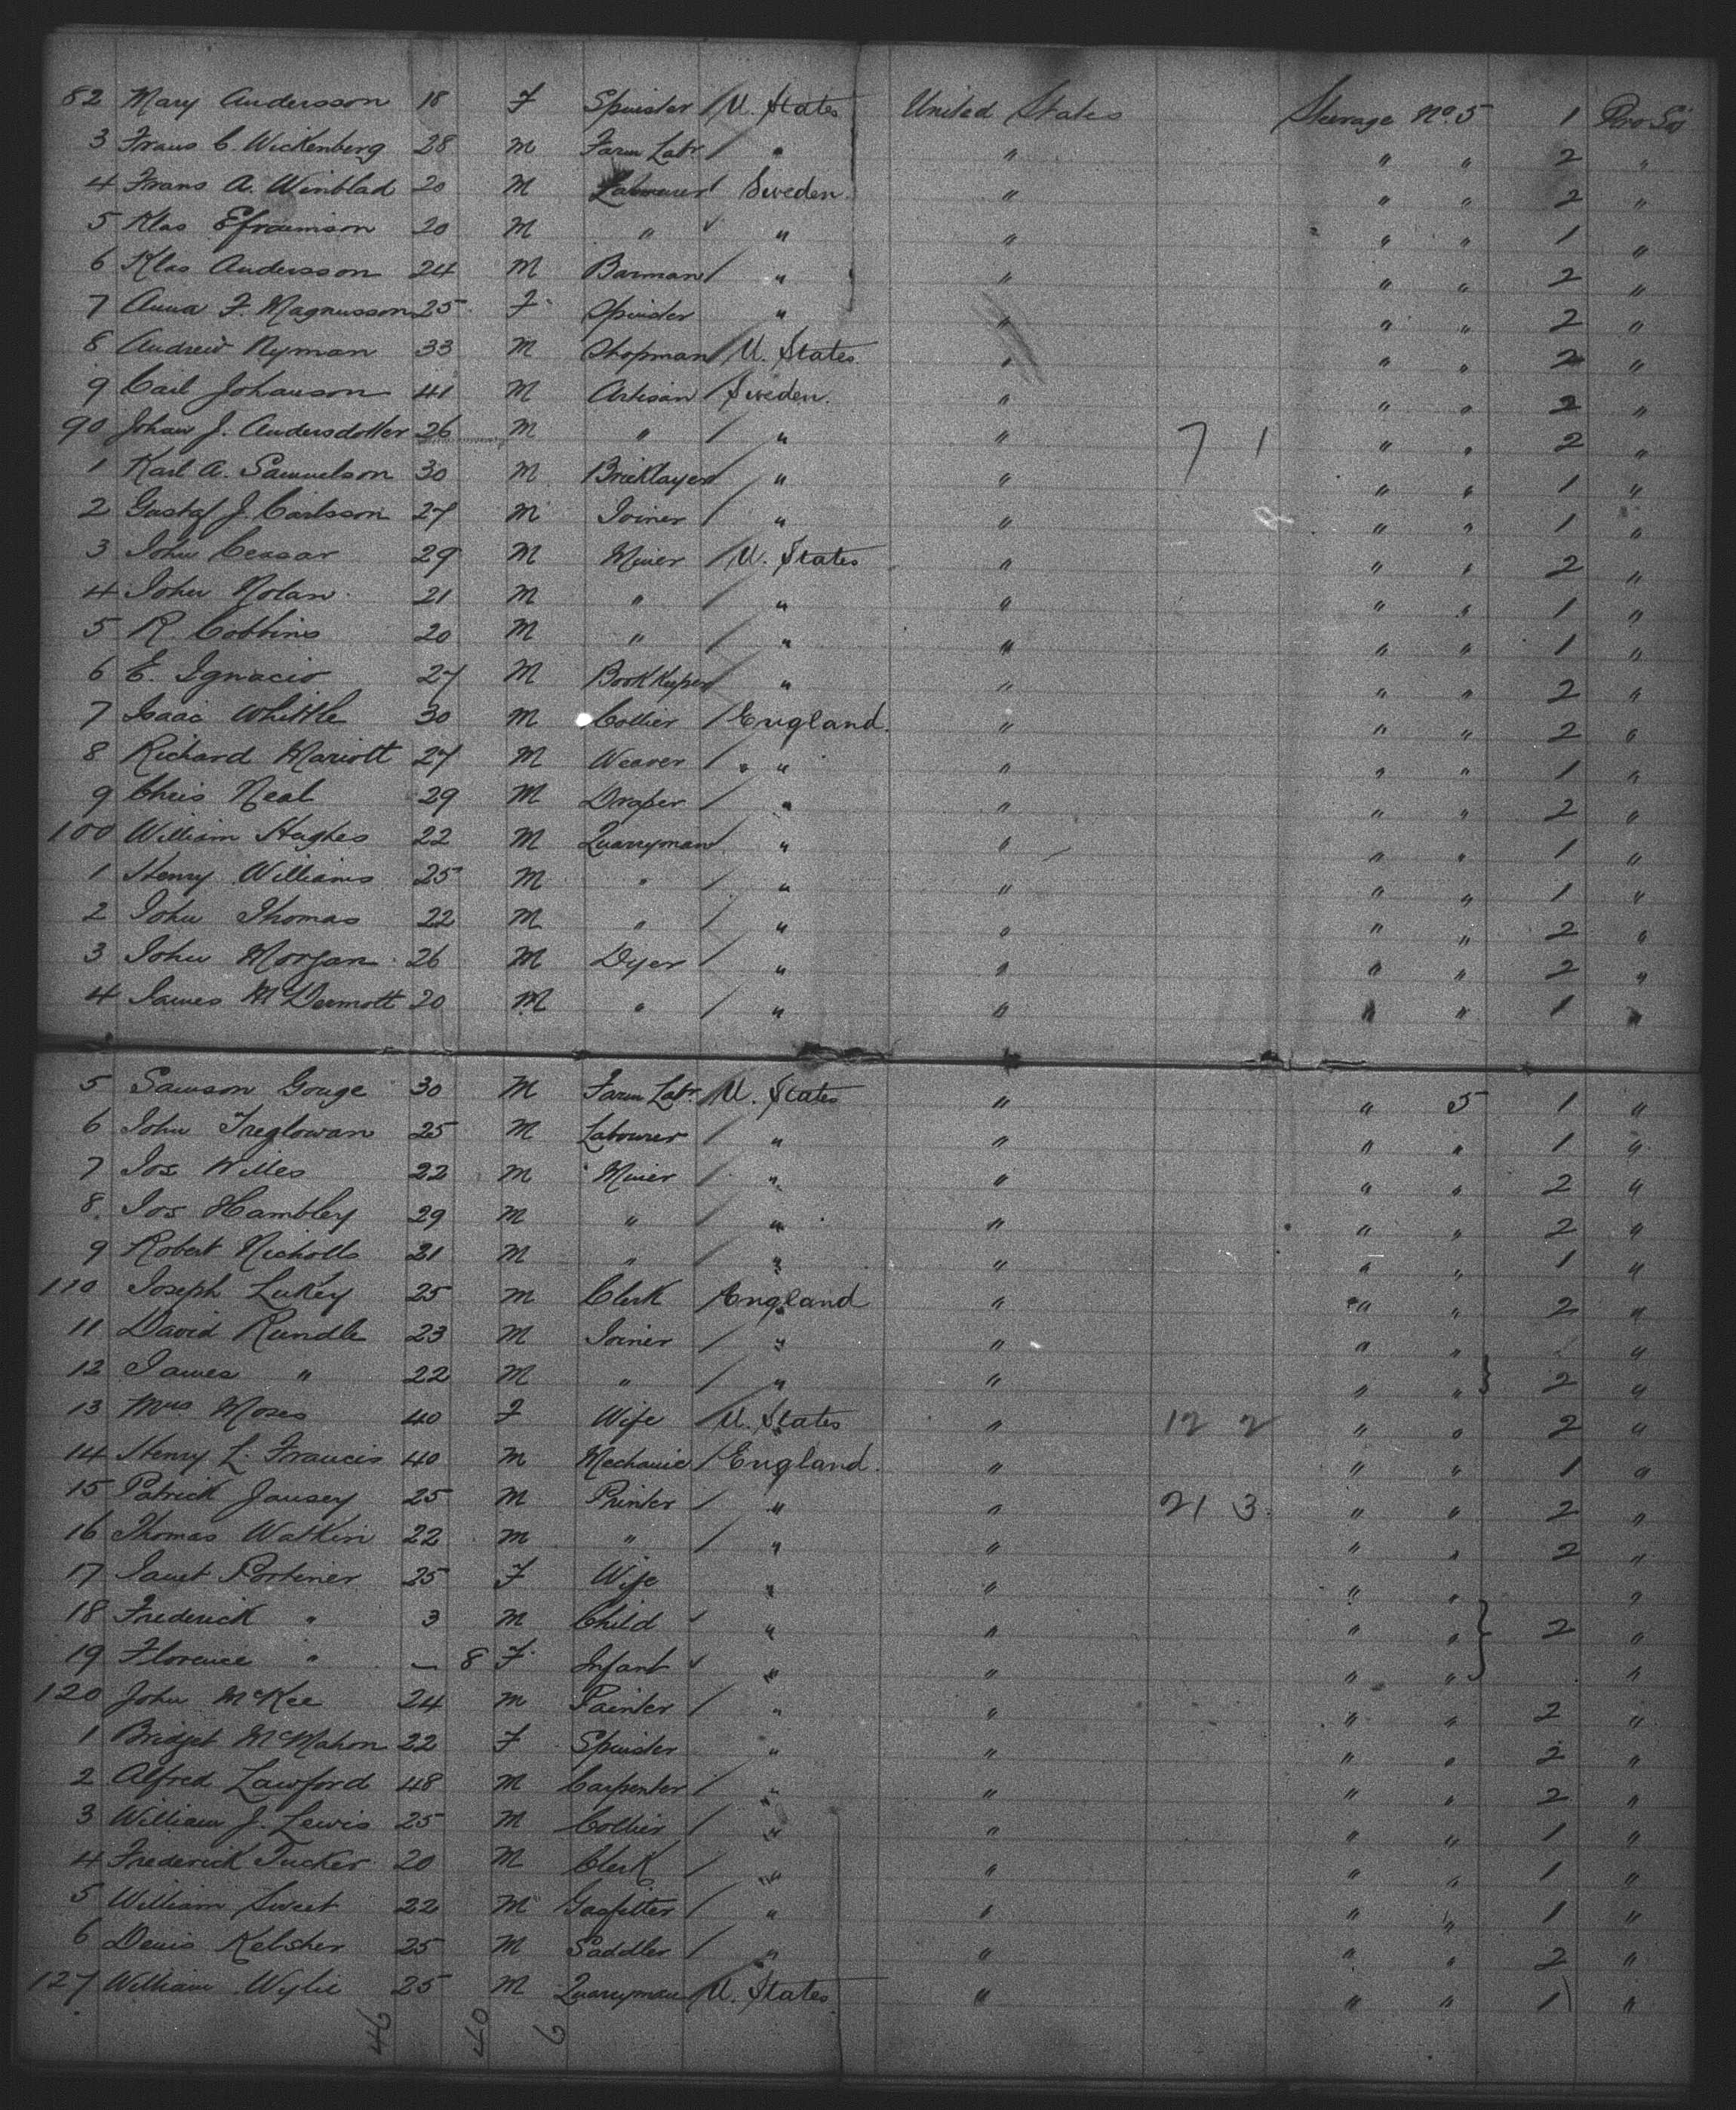 82 Mary Andersson 18 F Spinster / U. States United States Steerage No. 5 1 Pro So
3 Frans C. Wickenberg 28 M Farm Labr / " " " " 2 "
4 Frans A. Winblad 20 M Labourer / Sweden " " " 2 "
5 Klas Efraimson 20 M " " " " " 1 "
6 Klas Andersson 24 M Barman / " " " " 2 "
7 Anna F. Magnusson 25 F Spinster " " " " 2 "
8 Andrew Nyman 33 M Shopman / U. States " " " 2 "
9 Carl Johanson 41 M Artisan / Sweden. " " " 2 "
90 Johan J. Andersdotter 26 M " / " " 7 1 " " 2 "
1 Karl A. Samuelson 30 M Bricklayer / " " " " 1 "
2 Gustaf J. Carlsson 27 M Joiner / " " " " 1 "
3 John Cessar 29 M Miner / U. States " " " 2 "
4 John Nolan 21 M " / " " " " 1 "
5 R. Cobbins 20 M " / " " " " 1 "
6 E. Ignacio 27 M BookKeeper / " " " " 2 "
7 Isaac Whittle 30 M Collier / England. " " " 2 "
8 Richard Mariott 27 M Weaver / " " " " 1 "
9 Chris Neal 29 M Draper / " " " " 2 "
100 William Hughes 22 M Quarryman / " " " " 1 "
1 Henry Williams 25 M " / " " " " 1 "
2 John Thomas 22 M " / " " " " 2 "
3 John Morgan 26 M Dyer / " " " " 2 "
4 James McDermott 20 M " / " " " " 1 "
5 Samson Gouge 30 M Farm Labr. / U. States " " 5 1 "
6 John Treglowan 25 M Labourer / " " " " 1 "
7 Jos Willes 22 M Miner / " " " " 2 "
8. Jos Hambley 29 M " / " " " " 2 "
9 Robert Nicholls 21 M " / " " " " 1 "
110 Joseph Lukey 25 M Clerk / England " " " 2 "
11 David Rundle 23 M Joiner / " " " " "
12 James " 22 M " / " " " " } 2 "
13 Mrs Moses 40 F Wife / U. States " 12 2 " " 2 "
14 Henry L. Francis 40 M Mechanic / England. " " " 1 "
15 Patrick Jansey 25 M Printer / " " 21 3 " " 2 "
16 Thomas Watkin 22 M " / " " " " 2 "
17 Janet Portener 25 F Wife " " " " "
18 Frederick " 3 M Child " " " " } 2 "
19 Florence " — 8 F Infant " " " " "
120 John McKee 24 M Painter / " " " " 2 "
1 Bridget McMahon 22 F Spinster " " " " 2 "
2 Alfred Lawford 48 M Carpenter / " " " " 2 "
3 William J. Lewis 25 M Collier / " " " " 1 "
4 Frederick Tucker 20 M Clerk / " " " " 1 "
5 William Sweet 22 M Gasfitter / " " " " 1 "
6 Denis Kelsher 25 M Saddler / " " " " 2 "
127 William Wylie 25 M Quarryman / U. States " " " 1 "
46 40 6